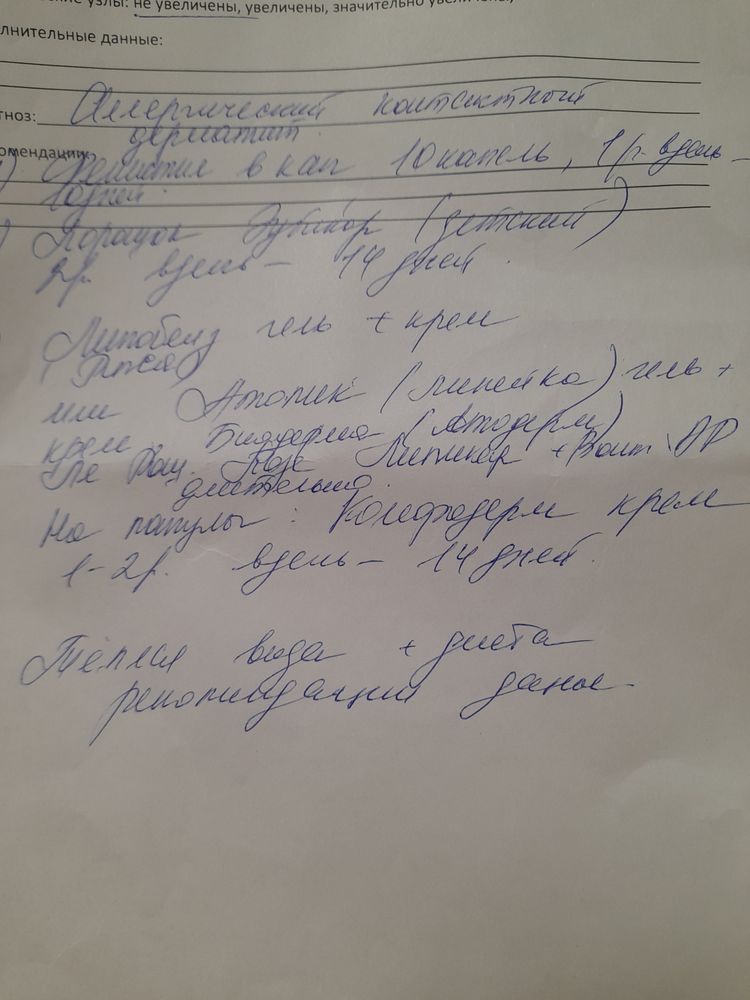 ские узлы: не увеличены, увеличены, значительно увеличены,
лнительные данные:
гноз: Аллергический контактный
дерматит.
омендации:
в кап 10 капель, 1 р. в день –
10 дней.
Порошок Зубикор (детский)
2р. в день – 14 дней.
Липобейз гель + крем
или Атопик (линейка) гель +
крем. Биодерма (Атодерм)
Ля Рош. Позе Липикар + АР
длительно.
На папулы: Комфодерм крем
1-2р. в день – 14 дней.
Тёплая вода + диета
рекомендации даны.